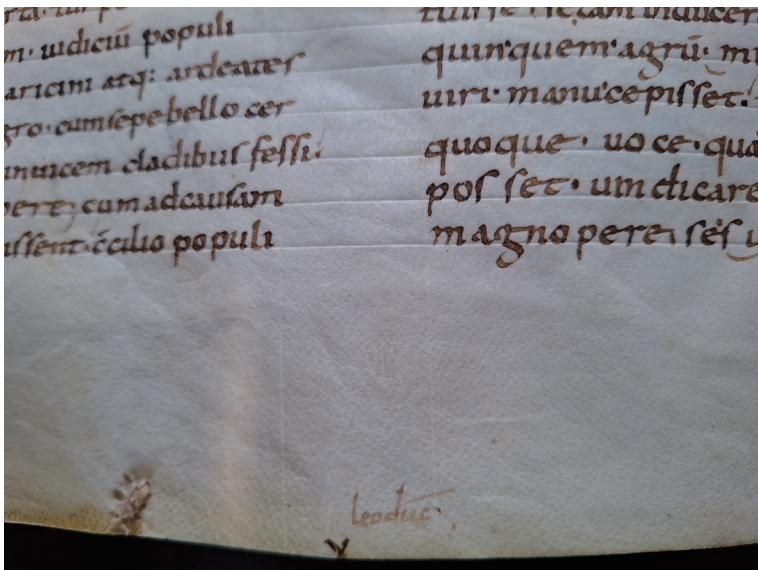 m· iudiciū populi
aricini atq: ardeates
gro· cum sepe bello cer
inuicem cladibus fessi.
cum ad causam
issent· c̄cilio populi
quin quem agrū· mi
uiri· manu cepisset.
quoque· uoce· quā
posset· uindicare
magno pere; ses
leoduc·